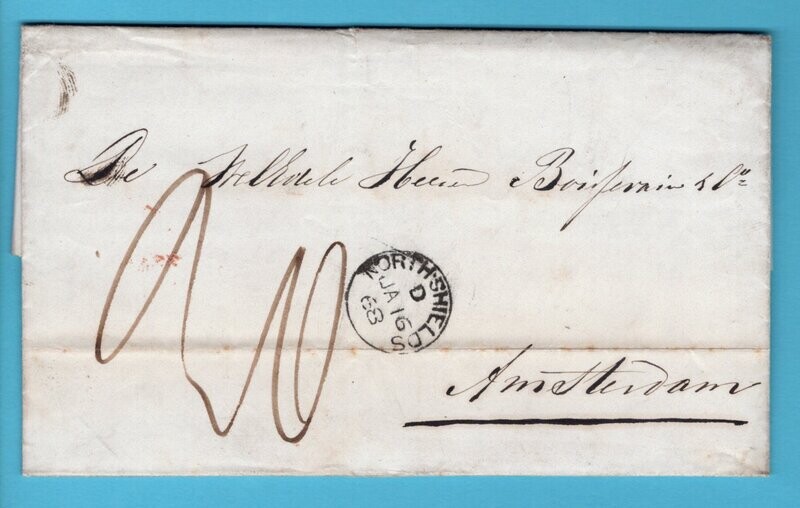 De WelEdele Heeren Boissevain & Co
20
NORTH·SHIELDS
D
JA 16
68
Amsterdam